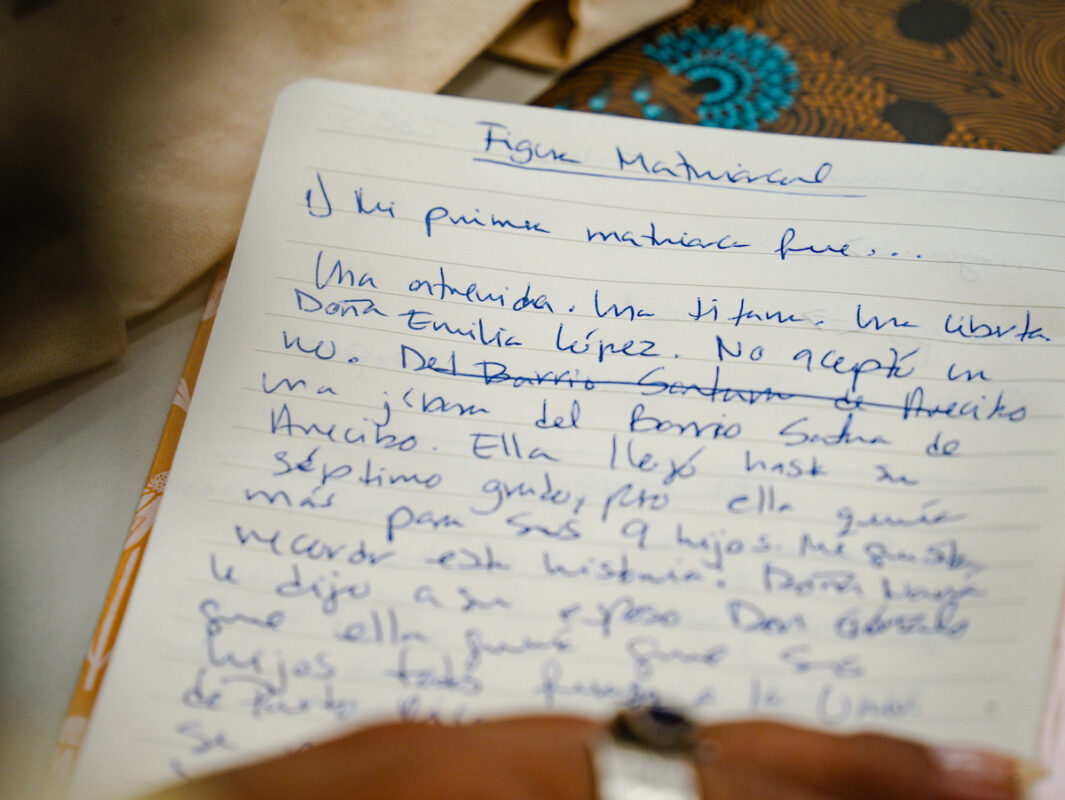 Figura Matriarcal
1) Mi primera matriarca fue...
Una entrenida. Una titana. Una liberta.
Doña Emilia López. No aceptó un
no. Del Barrio Santana de Arecibo
una jíbara del Barrio Satna de
Arecibo. Ella llegó hasta su
séptimo grado, pero ella quería
más para sus 9 hijos. Me gusta
recordar esta historia. Doña
le dijo a su esposo Don Gonzalo
que ella quería que sus
hijos todos fueran a la
de Puerto
se